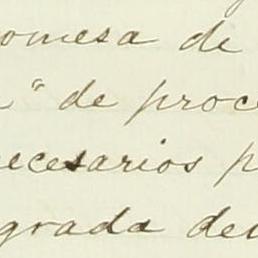 omesa de
" de proce
necesarios p
grada deu